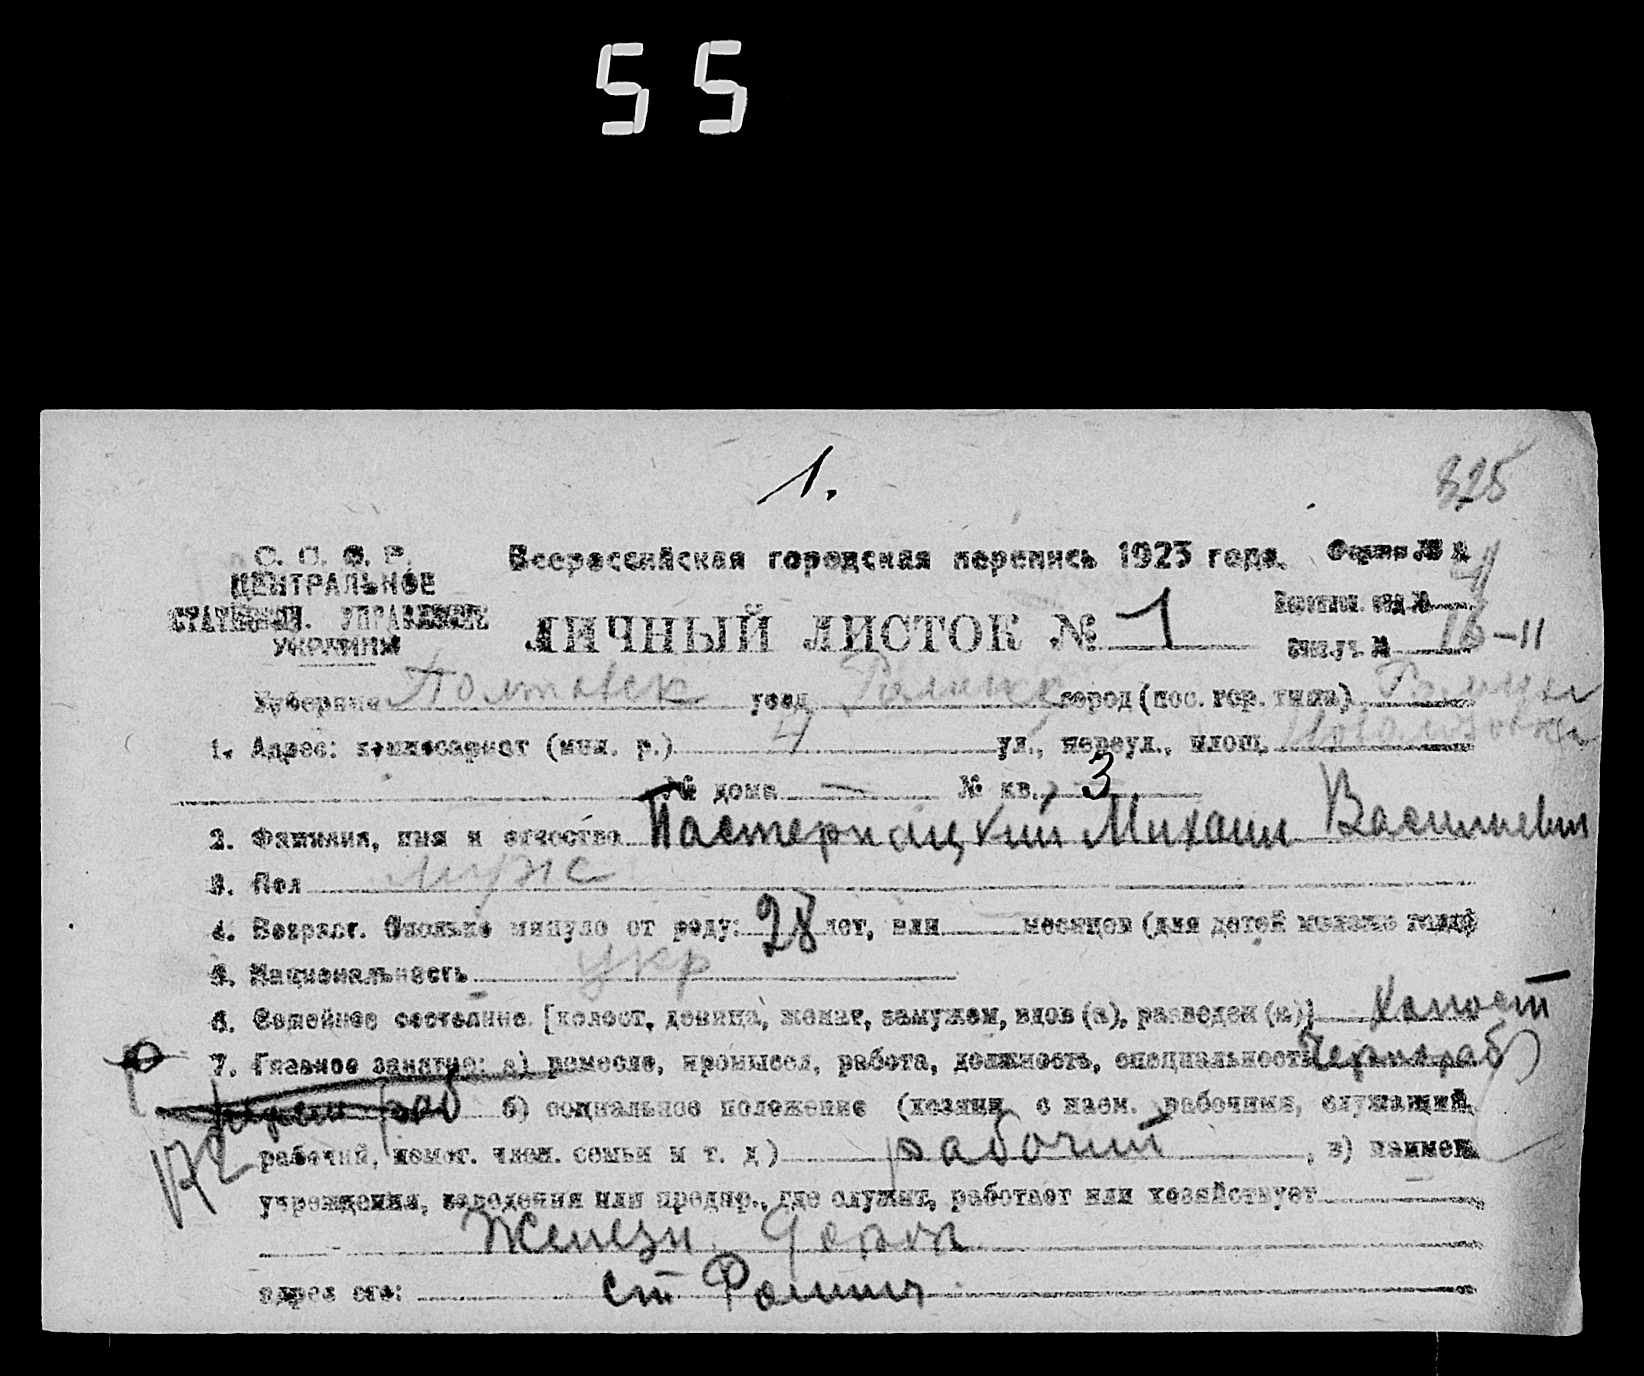 55
1.
825
С. С. С. Р.
ЦЕНТРАЛЬНОЕ
СТАТИСТИЧ. УПРАВЛЕНИЕ
УКРАИНЫ
Всероссийская городская перепись 1923 года. Форма № А
ЛИЧНЫЙ ЛИСТОК № 1
Переписн. отд. № 4
Счет. уч. № 16-11
Губерния Полтавск уезд Роменск город (пос. гор. типа) Ромны
1. Адрес: комиссариат (мил. р.) 4 ул., переул., площ.
№ дома — № кв. 3
2. Фамилия, имя и отчество Пастернацкий Михаил Васильевич
3. Пол муж
4. Возраст. Сколько минуло от роду: 28 лет, или месяцев (для детей моложе года)
5. Национальность укр
6. Семейное состояние [холост, девица, женат, замужем, вдов (а), разведен (а)] Холост
7. Главное занятие: а) ремесло, промысел, работа, должность, специальность Чернораб
б) социальное положение (хозяин с наем. рабочими, служащий,
рабочий, помог. член. семьи и т. д.) рабочий, в) наимен.
учреждения, заведения или предпр., где служит, работает или хозяйствует
Железн. Дорога
адрес его: ст Ромны